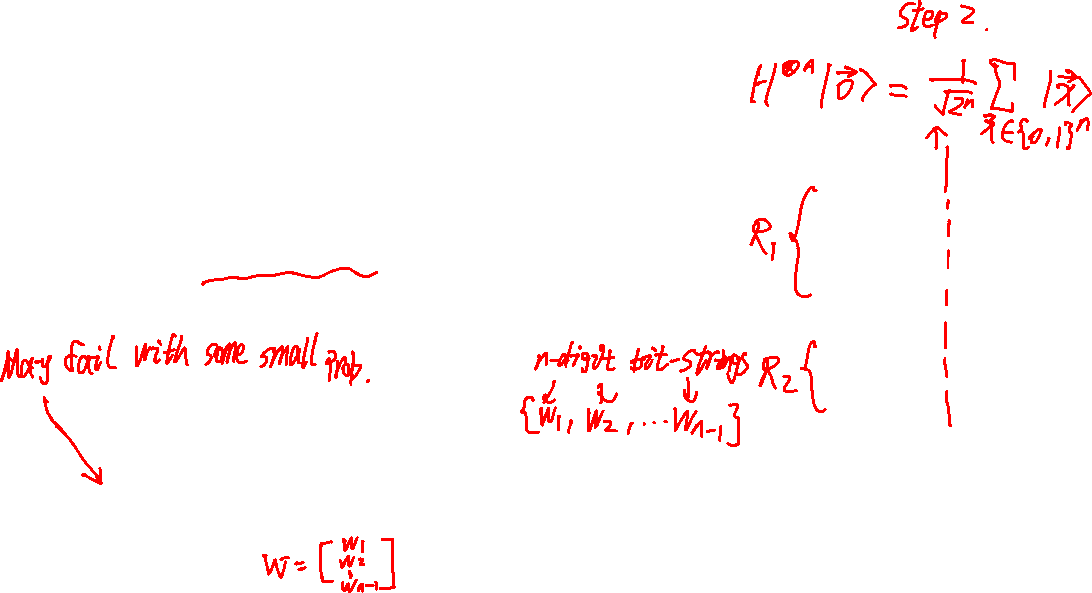 Step 2.
H^{⊗n}|\vec{0}⟩ = \frac{1}{\sqrt{2^n}} \sum_{\vec{x}∈{0,1}^n} |\vec{x}⟩
R₁ {
May fail with some small prob.
n-digit bit-strings
R₂ {
{W₁, W₂, ... Wₙ₋₁}
W = [W₁ W₂ ⋮ Wₙ₋₁]